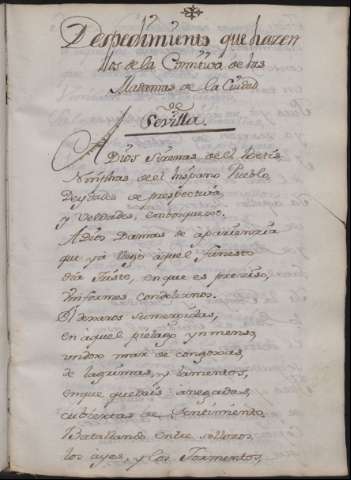 Despedimiento que hazen
los de la Comitiva, de las
Madamas de la Ciudad
de
Sevilla
A Dios Sirenas de el Betis
Nimphas de el hispano Pueblo
Deydades de prespectiva
y Veldades, en bosquexo.
A dios Damas de apariencia
que ya llegó aquel funesto
dia triste, en que es preciso,
conderlernos.
dexaros sumergidas,
en aquel pielago ynmenso,
undoso mar de congoxas,
de lagrimas, y lamentos,
en que quedais anegadas,
cubiertas de Sentimiento,
Batallando entre sollozos,
los ayes, y los Tormentos,